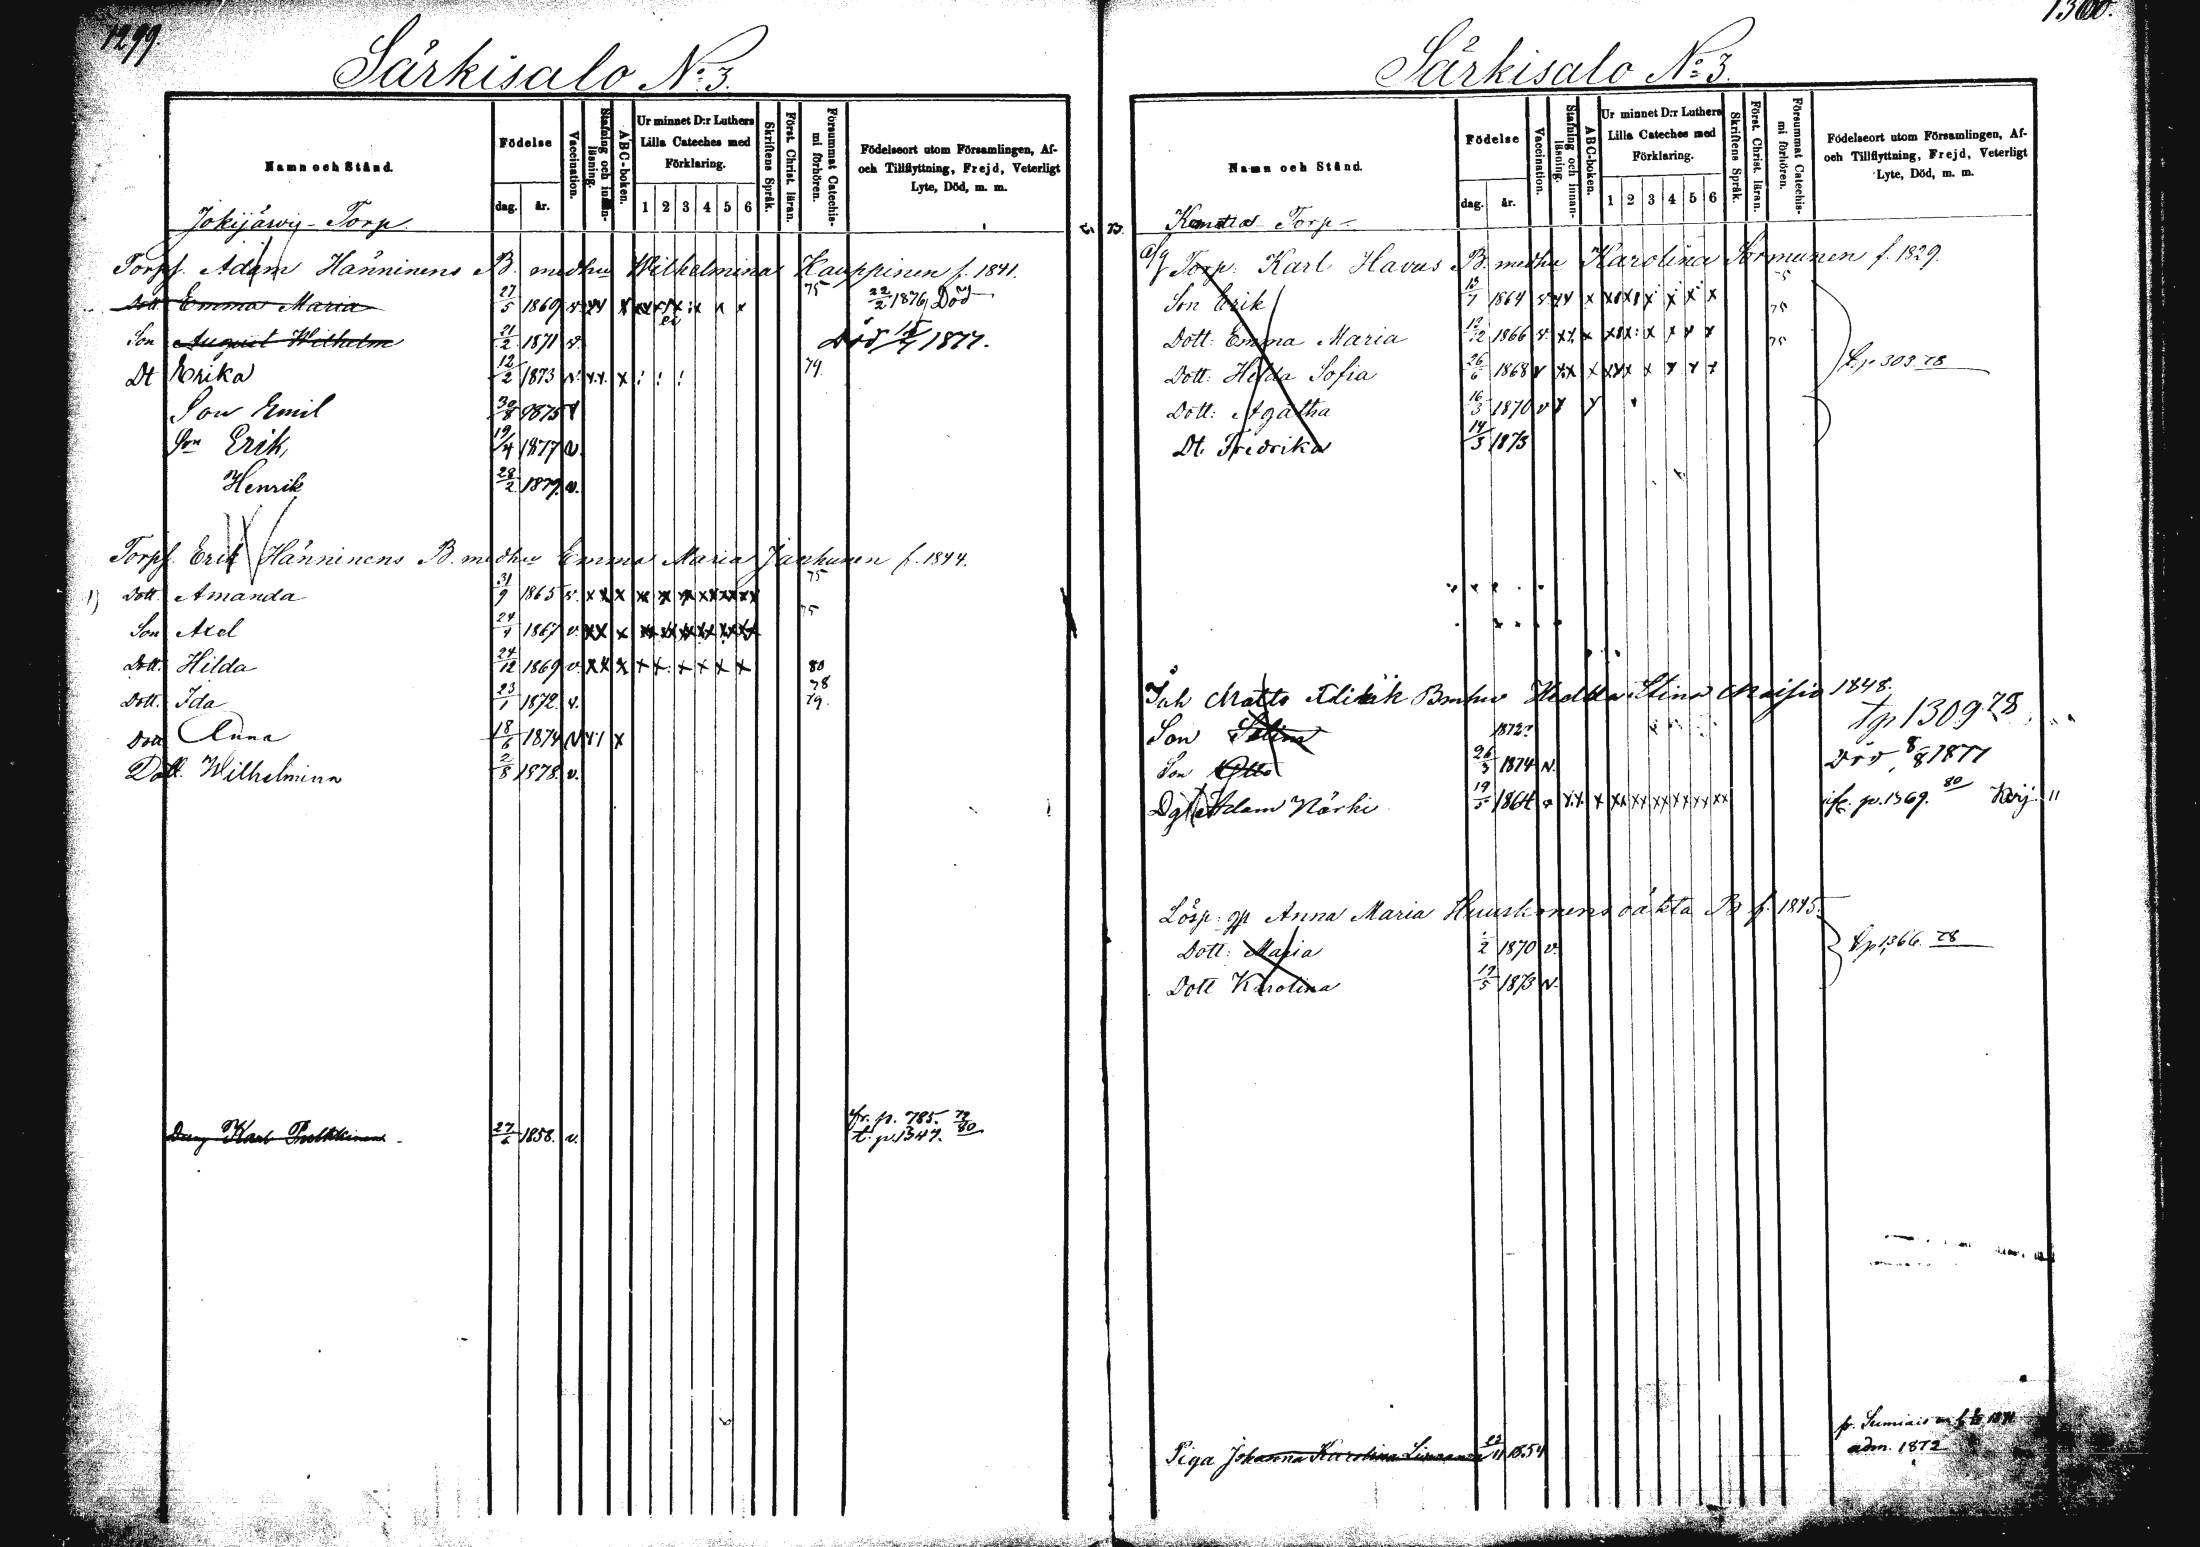 1299.
Särkisalo No 3.
Namn och Stånd.
Födelse
dag. år.
Vaccination.
Stafning och innan-läsning.
ABC-boken.
Ur minnet D:r Luthers Lilla Cateches med Förklaring.
1 2 3 4 5 6
Skriftens Språk.
Först. Christ. läran.
Försummat Catechis-mi förhören.
Födelseort utom Församlingen, Af- och Tillflyttning, Frejd, Veterligt Lyte, Död, m. m.
Jokijärvij - Torp.
Torpf. Adam Hänninens B. medhu Wilhelmina Kauppinen f. 1841.
Dott Emma Maria 27/5 1869 v. 75 22/2 1876 Död
Son August Wilhelm 21/2 1871 v. Död 1877.
Dt Erika 12/2 1873 v. x x x ! ! ! 79.
Son Emil 30/8 1875 v
Son Erik, 19/4 1877 v.
Henrik 28/2 1879. v.
Torpf. Erik Hänninens B. medhu Emma Maria Janhunen f. 1844.
Dott. Amanda 31/9 1865 v. 75
Son Axel 24/4 1867 v. 75
Dott. Hilda 24/12 1869 v. x x x x x x x x x 80
Dott. Ida 23/1 1872 v. 78 79.
Dott Anna 18/6 1874 v
Dott. Wilhelmina 2/8 1878. v.
Karl 27/6 1858. v. fr. p. 785. 79
t. p. 1347. 80
1300.
Särkisalo No 3.
Namn och Stånd.
Födelse
dag. år.
Vaccination.
Stafning och innan-läsning.
ABC-boken.
Ur minnet D:r Luthers Lilla Cateches med Förklaring.
1 2 3 4 5 6
Skriftens Språk.
Först. Christ. läran.
Försummat Catechis-mi förhören.
Födelseort utom Församlingen, Af- och Tillflyttning, Frejd, Veterligt Lyte, Död, m. m.
Torp
Torp. Karl Havus B. medhu Karolina Sormunen f. 1829.
Son Erik 13/7 1864 v. 75
Dott: Emma Maria 12/12 1866 v. 75
Dott: Hilda Sofia 26/6 1868 v 303 78
Dott: Agatha 16/3 1870 v
Dt. Fredrika 14/3 1873
Inh Matts Bmhu Hedda Stina 1848.
Son 1872? tp 1309 78
Son Otto 26/3 1874 v. Död 8/8 1877
Adam Närhi 19/5 1864 v p. 1369. 80
Lösp. gp Anna Maria Huuskonens oäkta B f. 1845.
Dott: Maria 1/2 1870 v. 1366. 78
Dott Karolina 19/5 1873 v.
Piga Johanna Karolina 23/11 1854 fr. Sumiais
adm. 1872